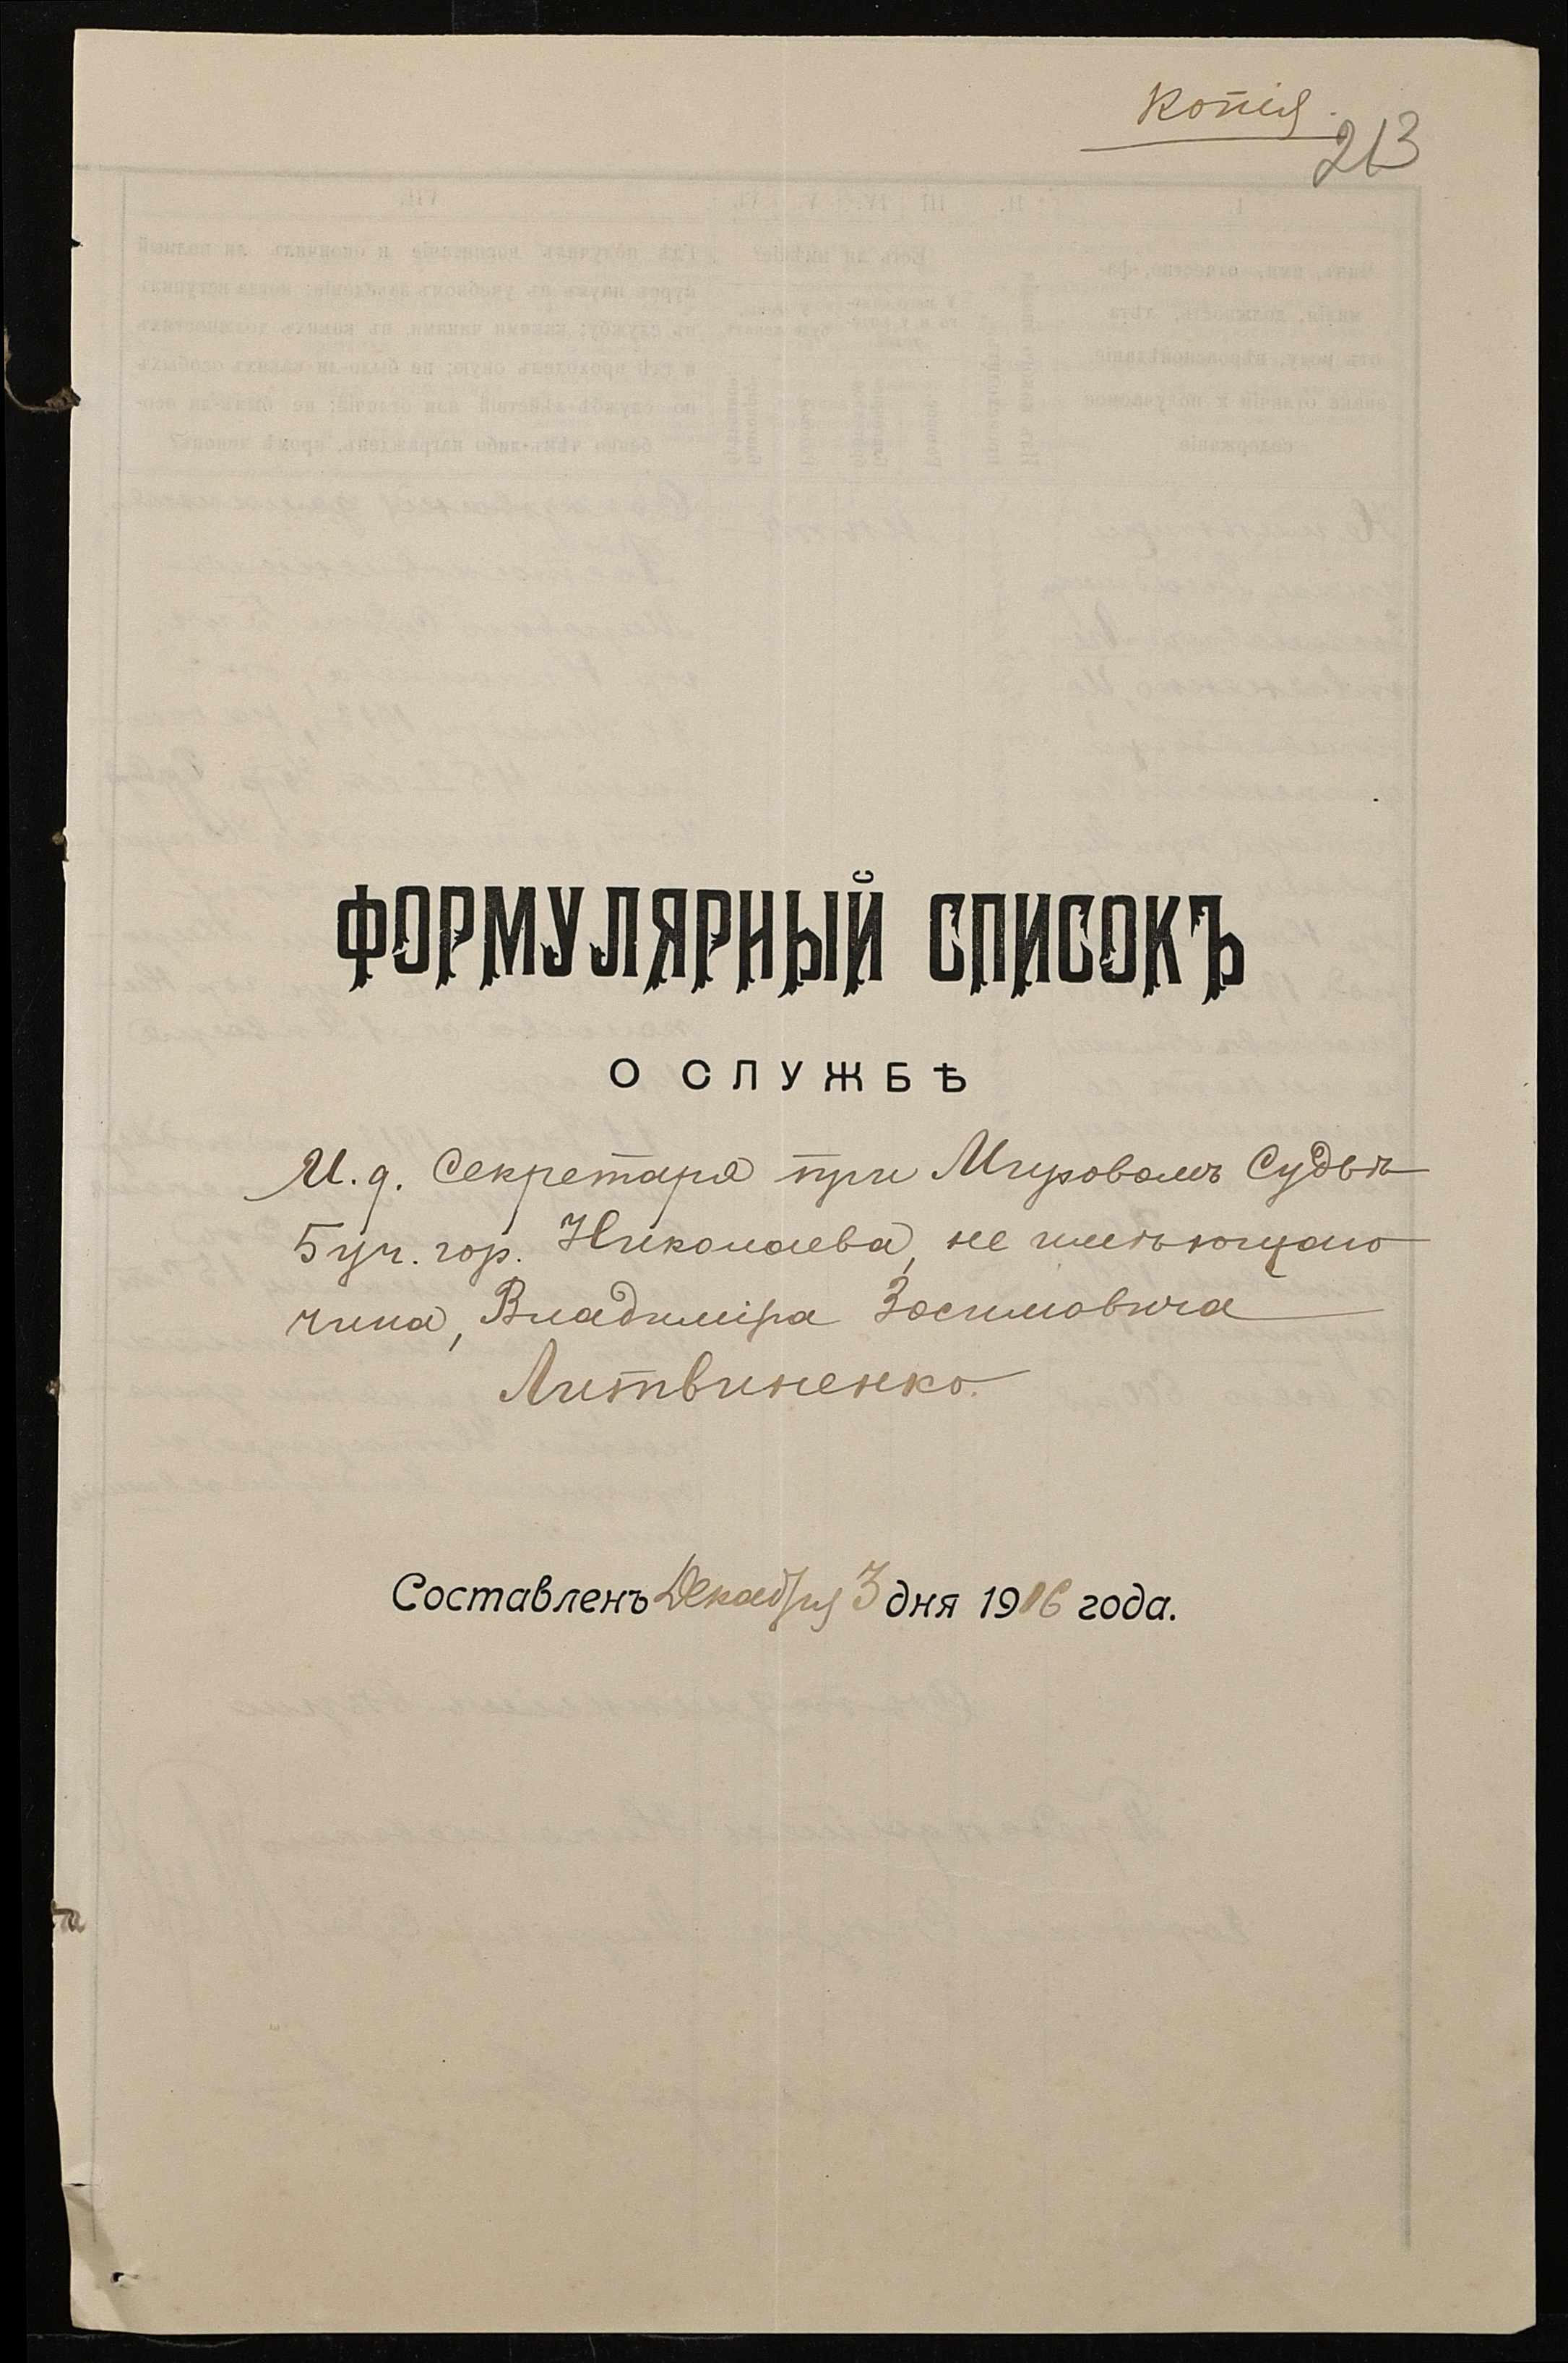 Копія.
213
ФОРМУЛЯРНЫЙ СПИСОКЪ
О СЛУЖБѢ
И. д. Секретаря при Мировомъ Судьѣ
5 уч. гор. Николаева, не имѣющаго
чина, Владиміра Зосимовича
Литвиненко.
Составленъ Декабря 3 дня 1916 года.